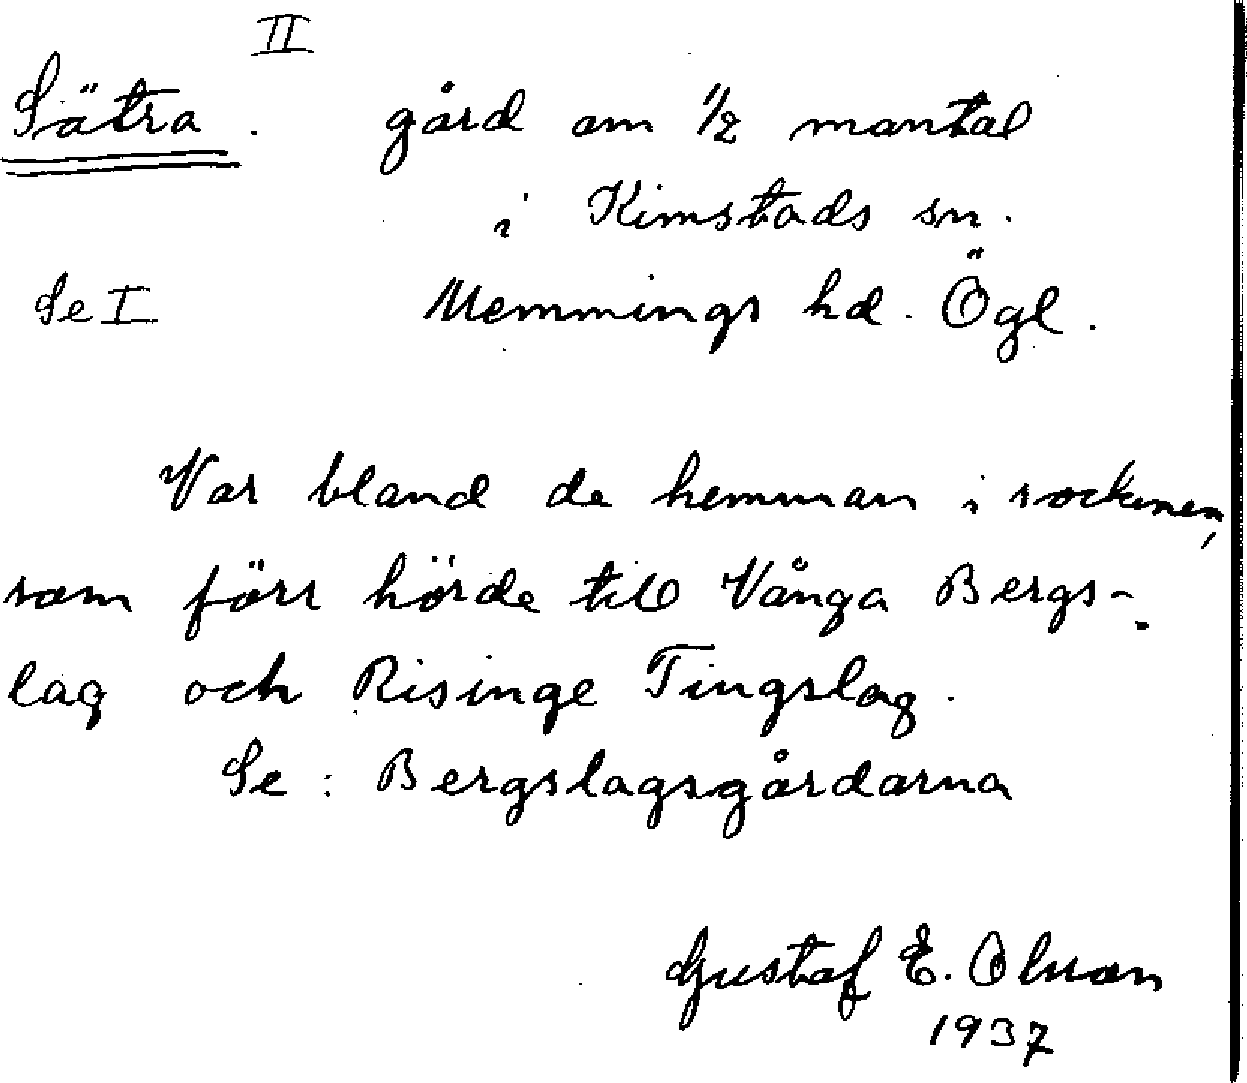 II
Sätra. gård om 1/2 mantal
i Kimstads sn.
Se I Memmings hd. Ögl.
Var bland de hemman i socknen,
som förr hörde till Vånga Bergs-
lag och Risinge Tingslag.
Se: Bergslagsgårdarna
Gustaf E. Olsson
1937